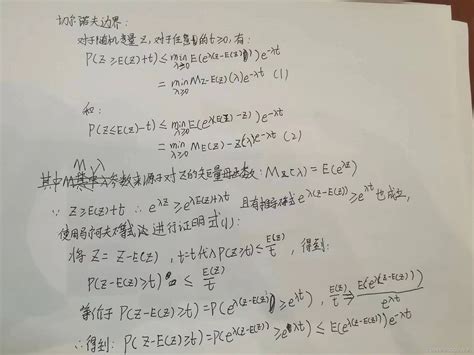 切尔诺夫边界:
对于随机变量Z,对于任意的t≥0,有:
P(Z≥E(Z)+t)≤min_{λ≥0}E(e^{λ(Z-E(Z))})e^{-λt}
=min_{λ≥0}M_{Z-E(Z)}(λ)e^{-λt} (1)
和:
P(Z≤E(Z)-t)≤min_{λ≥0}E(e^{λ(E(Z)-Z)})e^{-λt}
=min_{λ≥0}M_{E(Z)-Z}(λ)e^{-λt} (2)
M、λ
其中参数来源于对Z的矩量母函数:M_Z(λ)=E(e^{λZ})
∵Z≥E(Z)+t ∴e^{λZ}≥e^{λE(Z)+λt} 且有 e^{λ(Z-E(Z))}≥e^{λt}也成立,
使用马尔可夫不等式进行证明式(1):
将Z=Z-E(Z),t=t代入P(Z≥t)≤E(Z)/t,得到:
P(Z-E(Z)≥t)≤E(Z)/t
等价于P(Z-E(Z)≥t)=P(e^{λ(Z-E(Z))}≥e^{λt}),E(Z)/t⇒E(e^{λ(Z-E(Z))})/e^{λt}
∴得到:P(Z-E(Z)≥t)=P(e^{λ(Z-E(Z))}≥e^{λt})≤E(e^{λ(Z-E(Z))})e^{-λt}